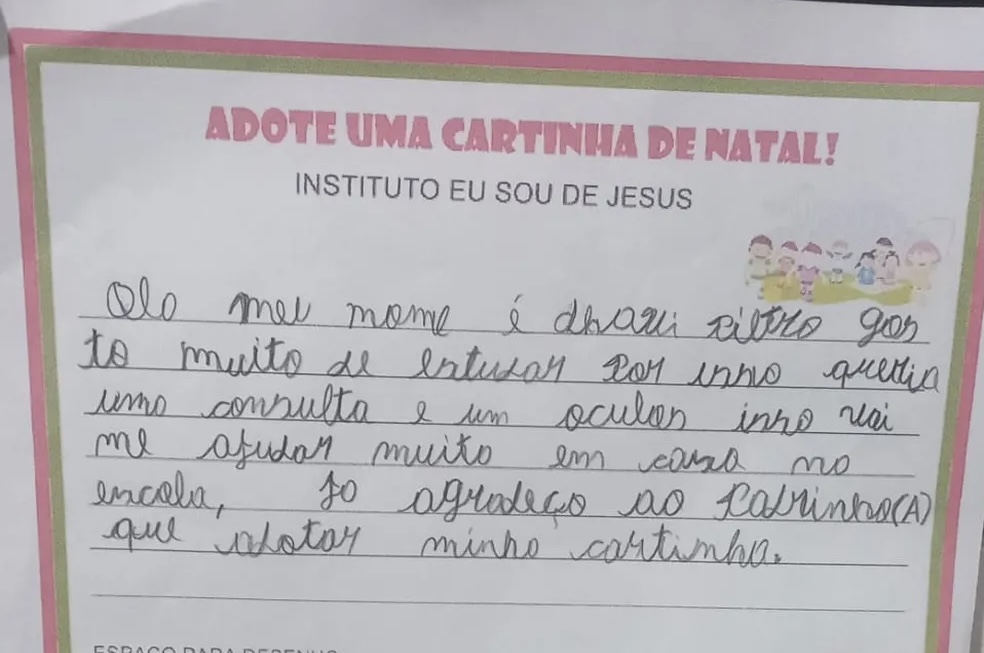 ADOTE UMA CARTINHA DE NATAL!
INSTITUTO EU SOU DE JESUS
Olo meu nome é gos
to muito de estudar por isso queria
uma consulta e um oculos isso vai
me ajudar muito em casa na
escola, Já agradeço ao Padrinho(A)
que adotar minha cartinha.
ESPAÇO PARA DESENHO